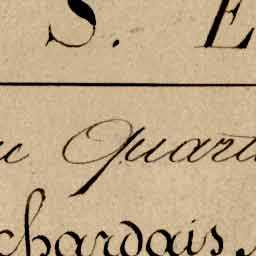 S. E
u Quart
chardais